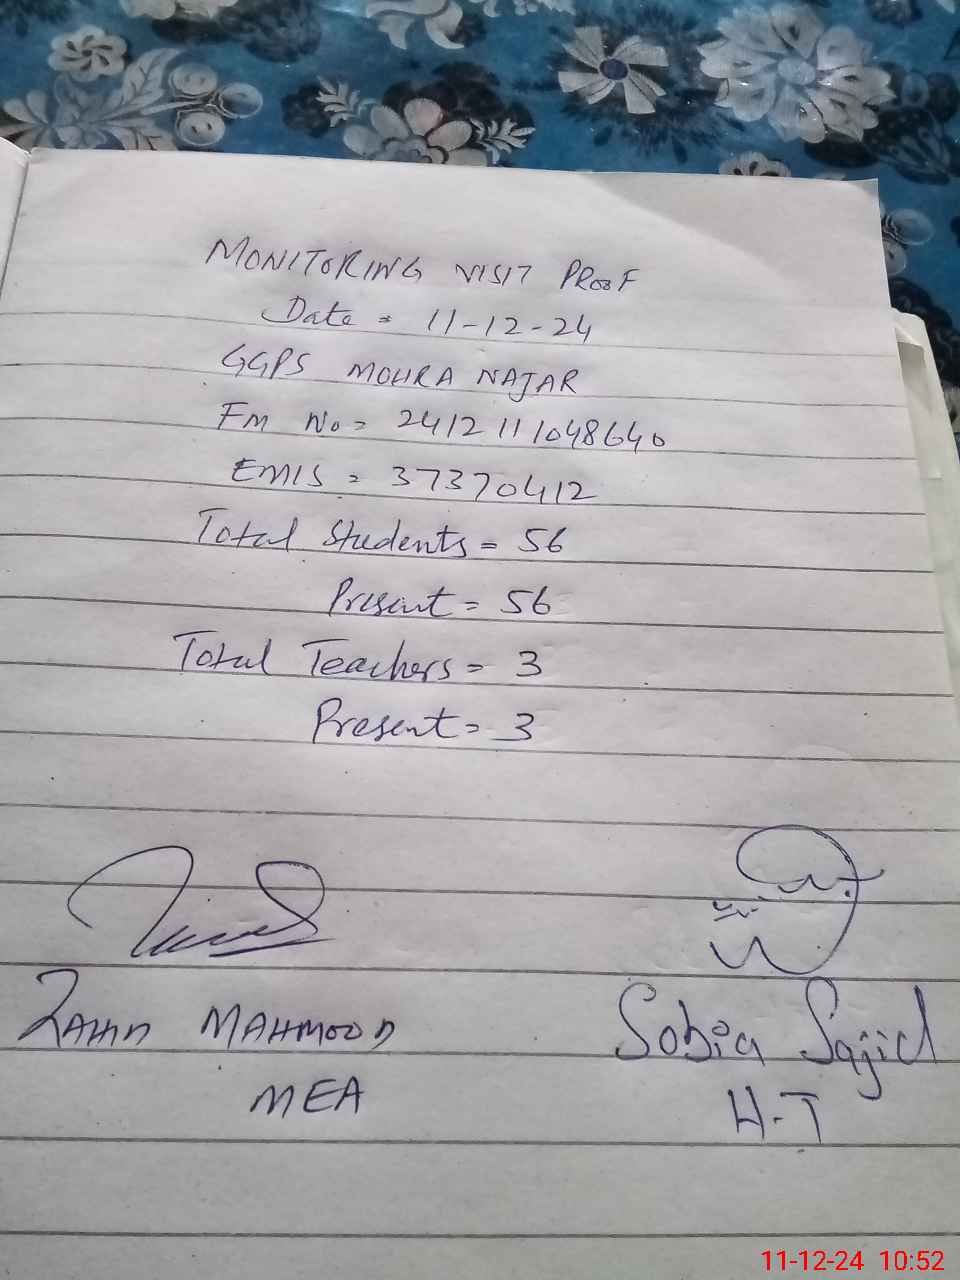 MONITORING VISIT PROOF
Date = 11-12-24
GGPS MOHRA NAJAR
Fm No = 2412111048640
EMIS = 37370412
Total Students = 56
Present = 56
Total Teachers = 3
Present = 3
MAHMOOD
Sobia Sajid
MEA
H-T
11-12-24 10:52